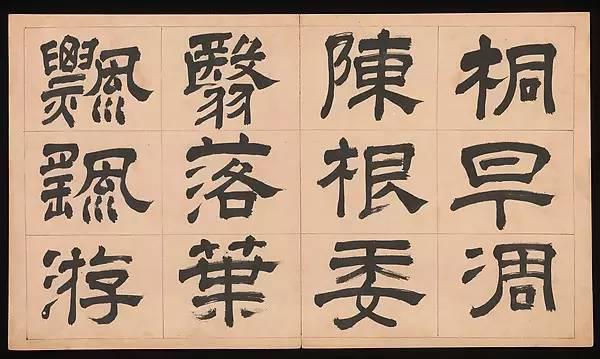 桐早凋
陳根委
翳落葉
飄颻游